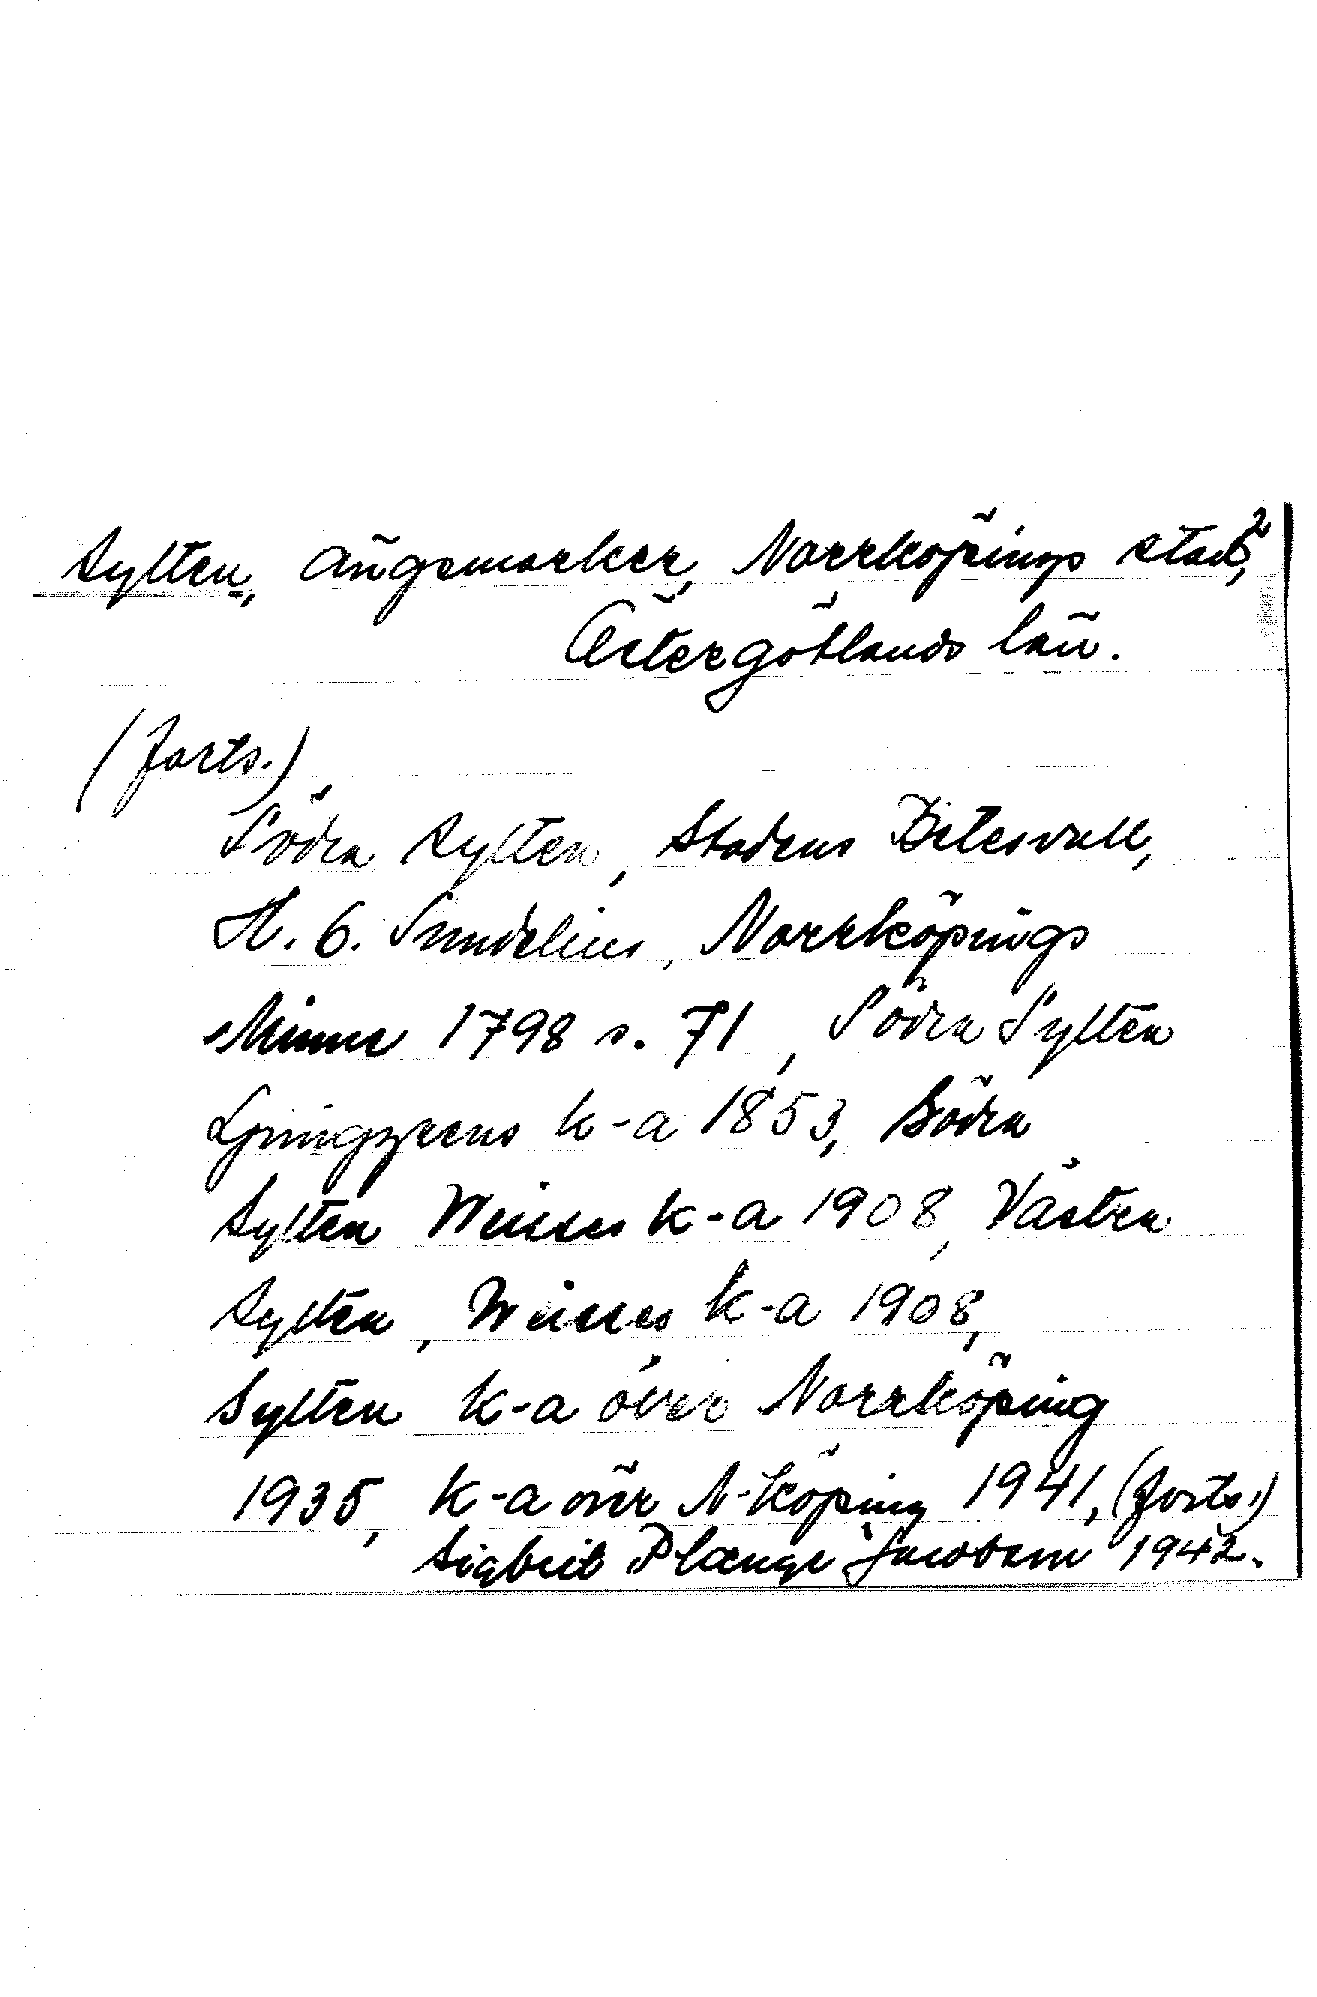 2
Sylten, ängsmarker, Norrköpings stad,
Östergötlands län.
(forts.)
Södra Sylten, Stadens Betesvall,
H. G. Sundelius, Norrköpings
Minne 1798 s. 71, Södra Sylten
Ljunggrens k-a 1853, Södra
Sylten Weisses k-a 1908, Västra
Sylten, Weisses k-a 1908,
Sylten k-a över Norrköping
1935, k-a över N-köping 1941, (forts.)
Sigbrit Plænge Jacobson 1942.